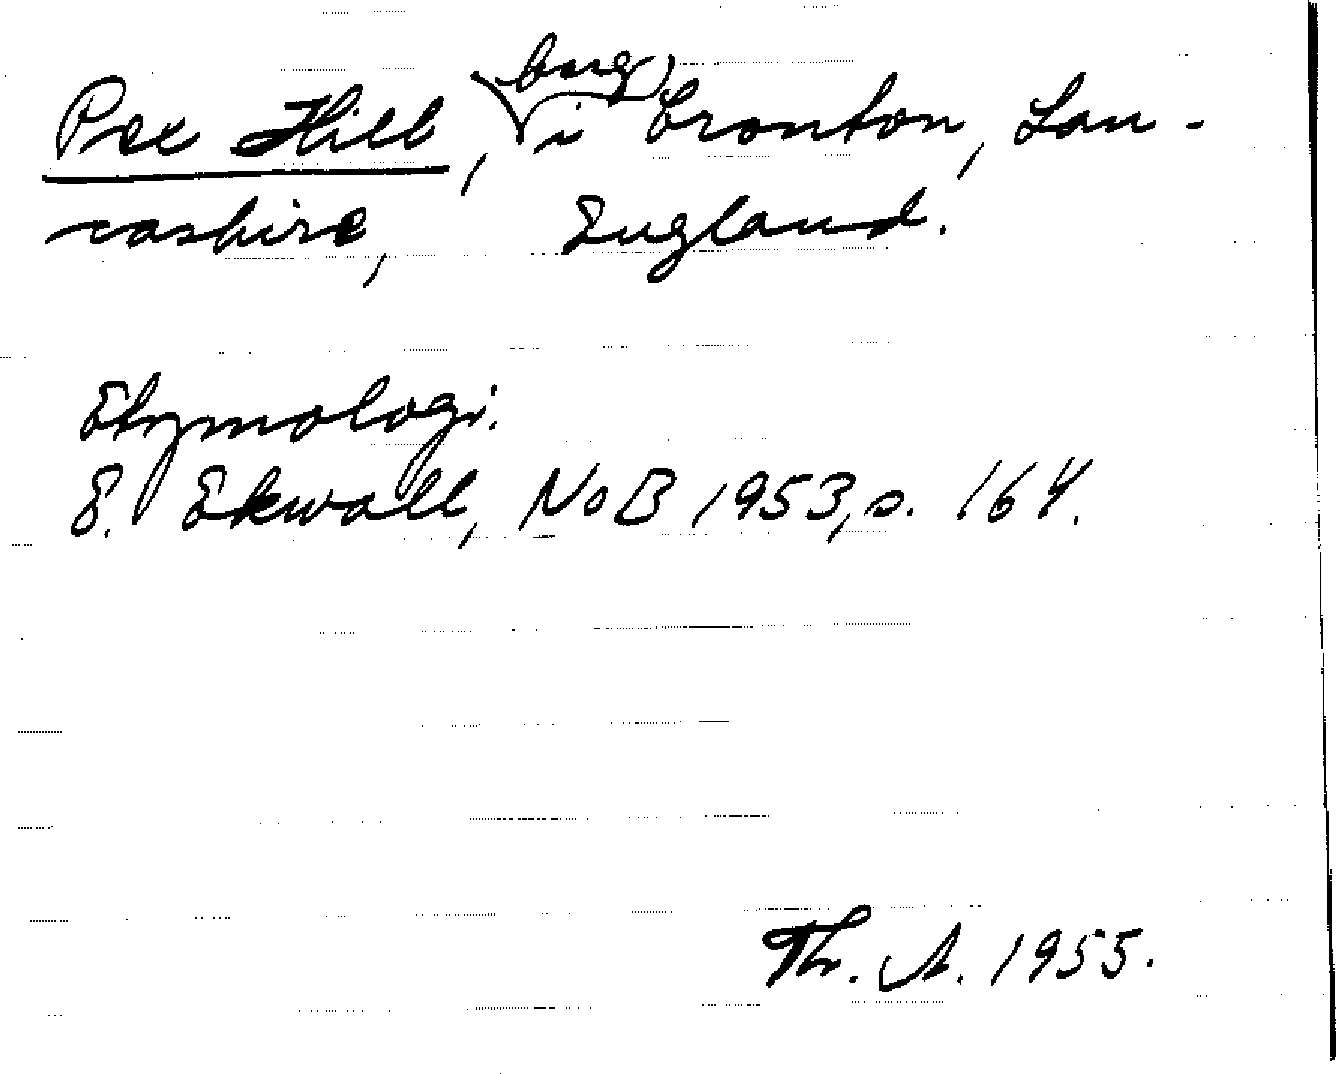 Pex Hill, berg i Cronton, Lan-
cashire, England.
Etymologi.
E. Ekwall, NoB 1953, s. 164.
Th. A. 1955.